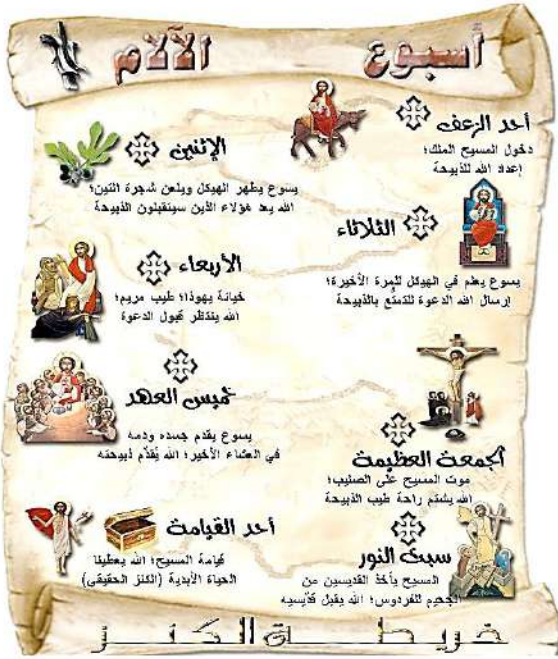 أسبوع الآلام
أحد الزعف
دخول المسيح الملك؛
إعداد الله للذبيحة
الإثنين
يسوع يطهر الهيكل ويلعن شجرة التين؛
الله يعد هؤلاء الذين سيتقبلون الذبيحة
الثلاثاء
يسوع يعلم في الهيكل للمرة الأخيرة؛
إرسال الله الدعوة للتمتع بالذبيحة
الأربعاء
خيانة يهوذا؛ طيب مريم؛
الله ينتظر قبول الدعوة
خميس العهد
يسوع يقدم جسده ودمه
في العشاء الأخير؛ الله يُقدّم ذبيحته
الجمعة العظيمة
موت المسيح على الصليب؛
الله يشتم راحة طيب الذبيحة
سبت النور
المسيح يأخذ القديسين من
الجحيم للفردوس؛ الله يقبل قديسيه
أحد القيامة
قيامة المسيح؛ الله يعطينا
الحياة الأبدية (الكنز الحقيقي)
خريطة الكنز